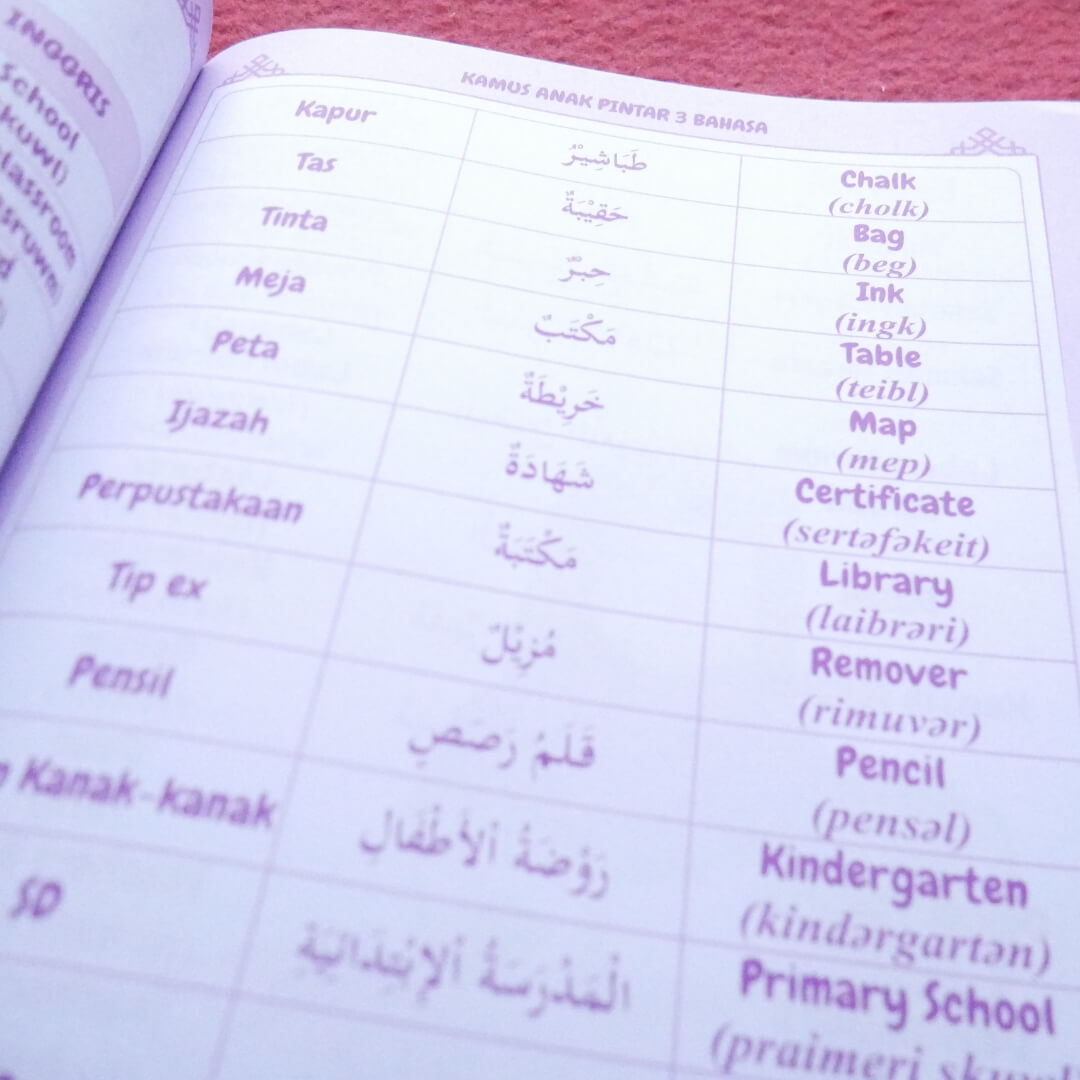 INGGRIS
school
KAMUS ANAK PINTAR 3 BAHASA
Kapur
طَبَاشِيْرُ
Chalk
(cholk)
Tas
حَقِيْبَةٌ
Bag
(beg)
Tinta
حِبْرٌ
Ink
(ingk)
Meja
مَكْتَبٌ
Table
(teibl)
Peta
خَرِيْطَةٌ
Map
(mep)
Ijazah
شَهَادَةٌ
Certificate
(sertəfəkeit)
Perpustakaan
مَكْتَبَةٌ
Library
(laibrəri)
Tip ex
مُزِيْلٌ
Remover
(rimuvər)
Pensil
قَلَمُ رَصَصٍ
Pencil
(pensəl)
Kanak-kanak
رَوْضَةُ ٱلأَطْفَال
Kindergarten
(kindərgartən)
SD
الْمَدْرَسَةُ ٱلإِبْتِدَائِيَةُ
Primary School
(praimeri